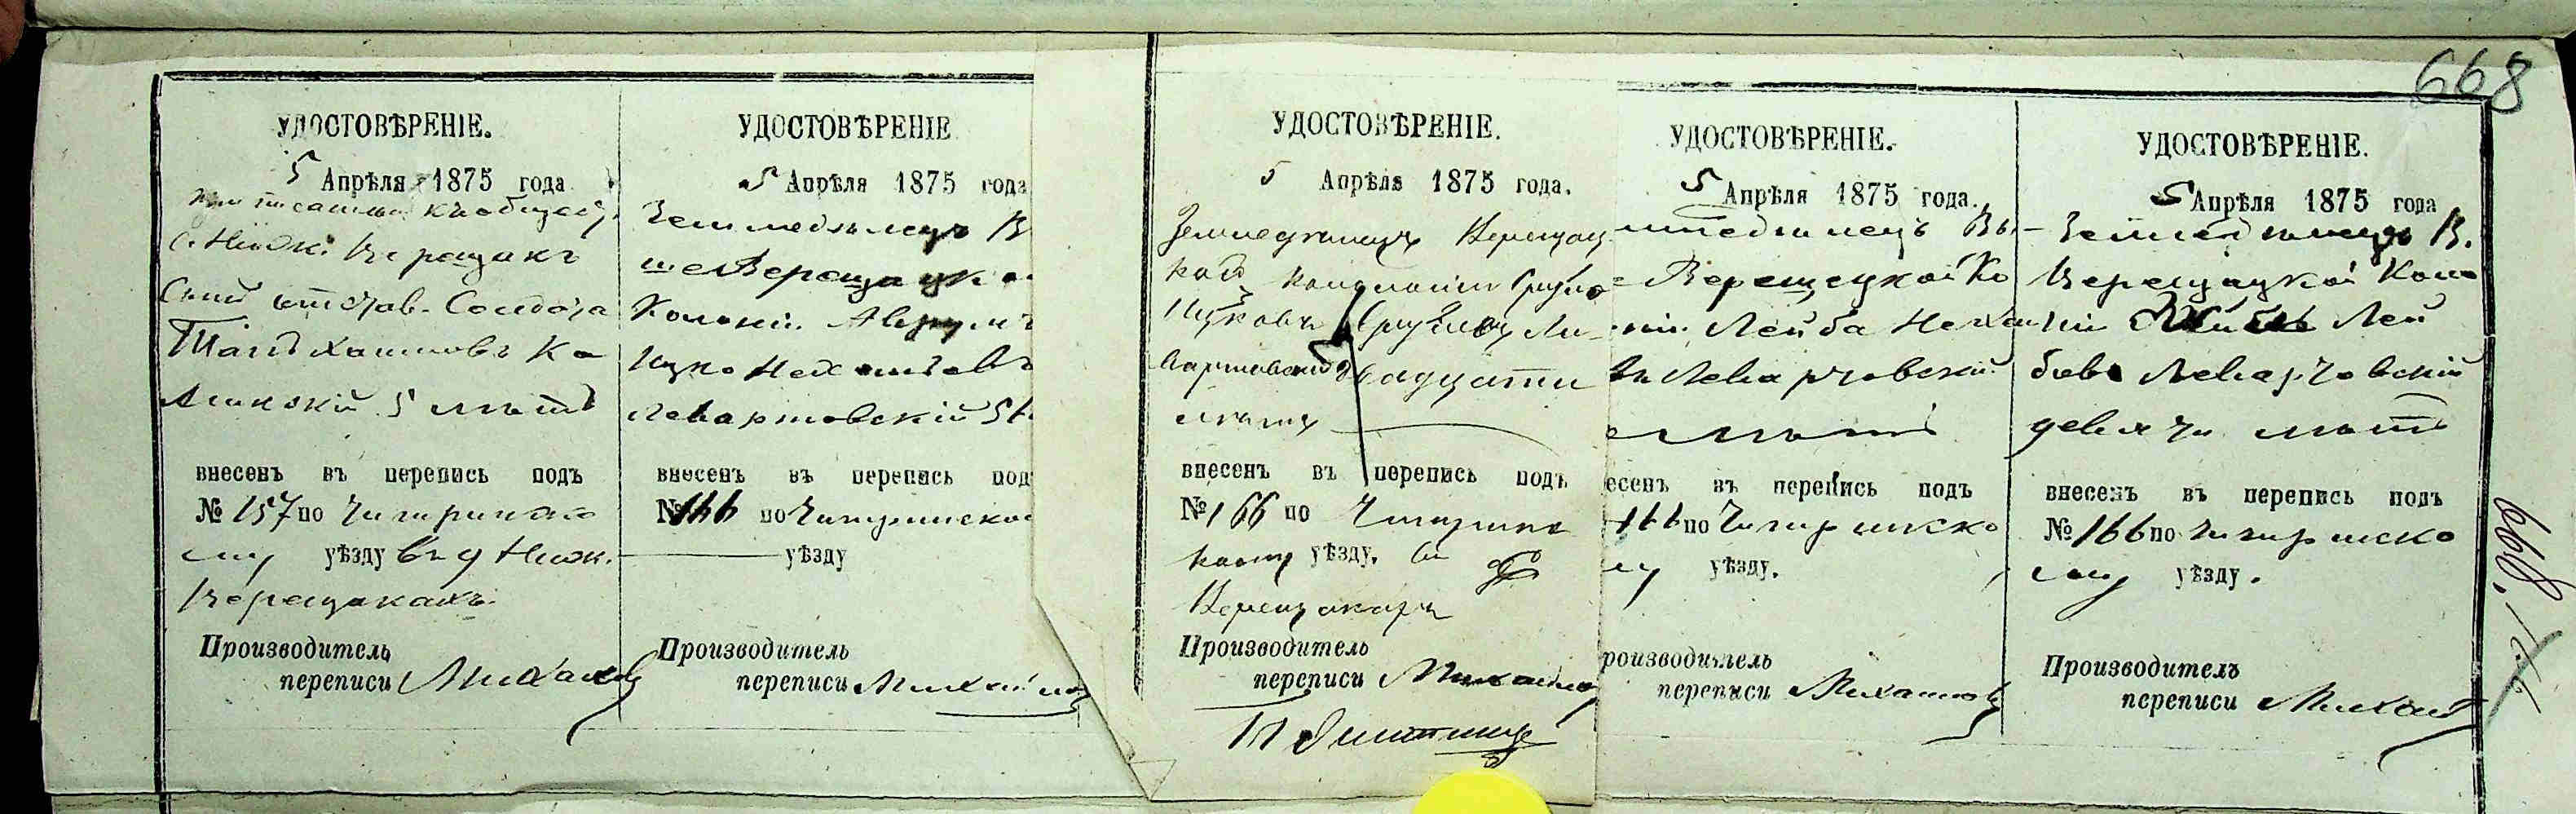 668
УДОСТОВѢРЕНІЕ.
5 Апрѣля 1875 года
с. Нижн. Верещакъ
5 лѣтъ
внесенъ въ перепись подъ
№ 157 по Чигиринско
му уѣзду въ с. Нижн.
Верещакахъ.
Производитель
переписи Михайлов
УДОСТОВѢРЕНІЕ
5 Апрѣля 1875 года
Землѣдѣлецъ В
ше Верещацкой
Колоніи Аврумъ
Ицко Нехамовъ
Левартовскій 51
внесенъ въ перепись под
№ 166 по Чигиринском
уѣзду
Производитель
переписи Михайлов
УДОСТОВѢРЕНІЕ.
5 Апрѣля 1875 года.
Земледѣлецъ Верещац
кой Колоніи Срулъ
Ицковъ Ле
вартовскій двадцати
лѣтъ
внесенъ въ перепись подъ
№ 166 по Чигиринс
кому уѣзду. въ с
Верещакахъ
Производитель
переписи Михайлов
УДОСТОВѢРЕНІЕ.
5 Апрѣля 1875 года.
млѣдѣлецъ Вы
е Верещецкой Ко
ніи Лейба Неха
въ Левартовскій
лѣтъ
есенъ въ перепись подъ
166 по Чигиринско
му уѣзду.
роизводитель
переписи Михайлов
УДОСТОВѢРЕНІЕ.
5 Апрѣля 1875 года
Землѣдѣлецъ В.
Верещацкой Коло
ніи Лей
бовъ Левартовскій
девяти лѣтъ
внесенъ въ перепись подъ
№ 166 по Чигиринско
му уѣзду.
Производитель
переписи Михайл
668.